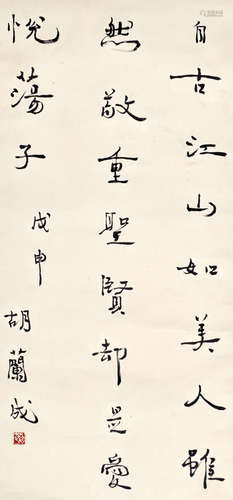 自古江山如美人雖
然敬重聖賢却是愛
悅蕩子
戊申
胡蘭成